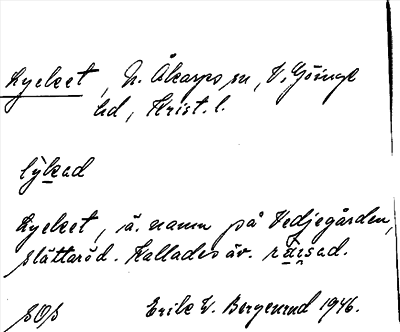 Lycket, N. Åkarps sn, V. Göinge
hd, Krist. l.
lykad
Lycket, ä. namn på Vedjegården,
slättaröd. Kallades äv. räisad.
SOS Erik W. Bergenrud 1946.